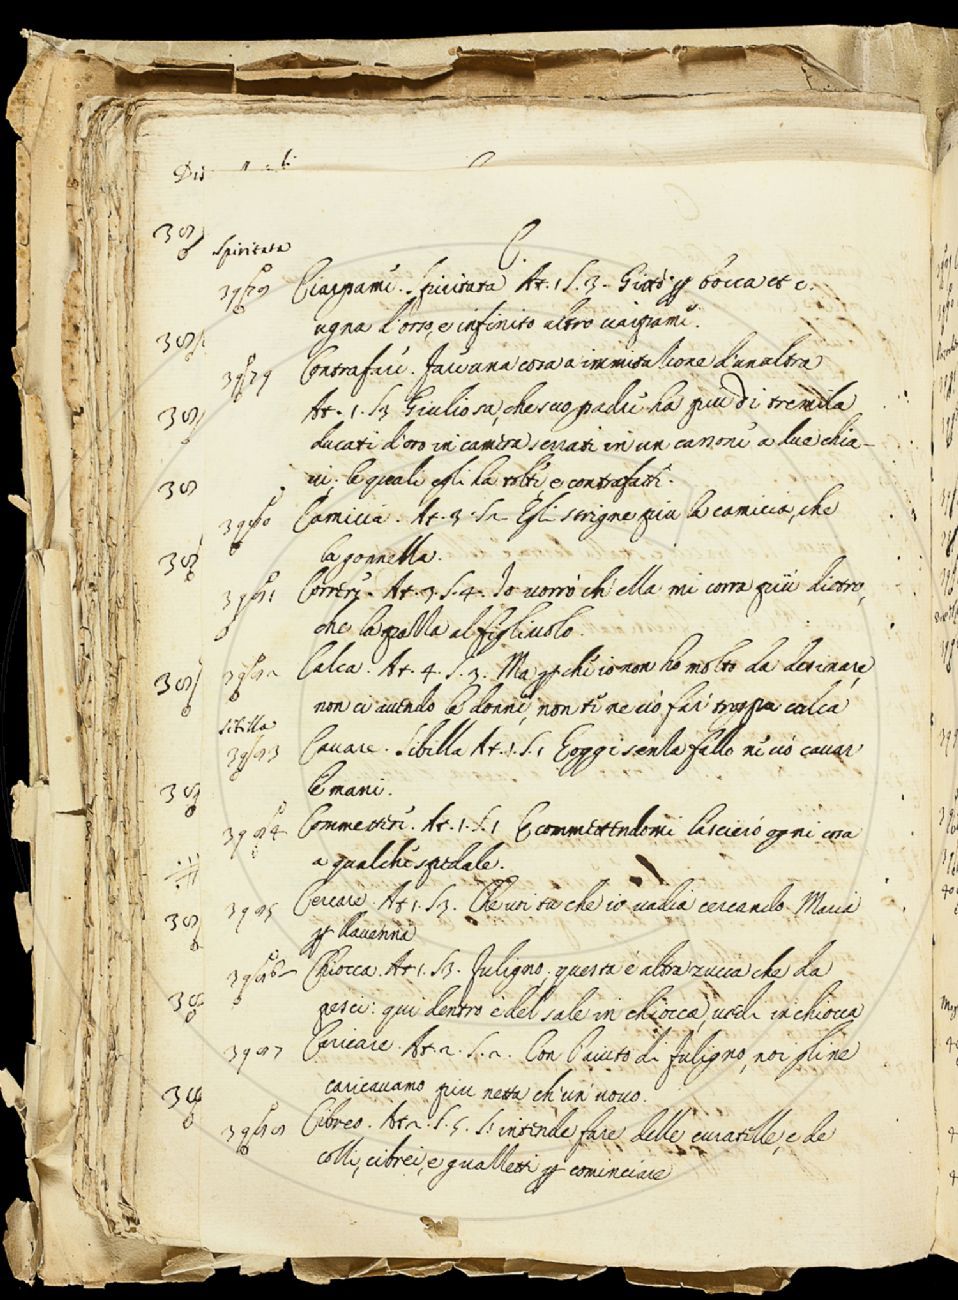 C.
Spiritata
Ciarpame. Spiritata At. 1 S. 3. Gittò p bocca et c.
ugna d'orso, e infinito altro ciarpame.
Contrafare. Fare una cosa a immitazione d'un altra
At. 1. S3 Giulio sa, che suo padre ha più di tremila
ducati d'oro in camera serrati in un cassone a due chia-
vi, le quali egli ha tolte e contrafatte.
Camicia. At. 3. S2 Egli strigne più la camicia, che
la gonnella.
Correre. At. 3. S. 4. Io vorrò ch'ella mi corra più dietro,
che la pazza al figlivolo.
Calca. At. 4. S. 3. Ma p che io non ho molto da desinare,
non ci avendo le donne, non te ne vò far troppa calca
Sibilla
Cavare. Sibilla At. 1. S. 1 E oggi senza fallo ne vò cavar
le mani.
3994 Commettere. At. 1. S. 1 E commettendomi lascierò ogni cosa
a qualche spedale.
3995 Cercare. At 1. S3. Che vui tu che io vadia cercando Maria
p Ravenna
3996 Chiocca. At 1. S3. Fuligno, questa è altra zucca che da
pesci: qui dentro è del sale in chiocca,
3997 Caricare. At. 2. S. 2. Con l'aiuto di Fuligno, noi gliene
caricavamo più netta ch'un uovo.
Cibreo. At 2. S. 5. S'intende fare delle curatelle, e de
colli, cibrei, e guazzetti p cominciare